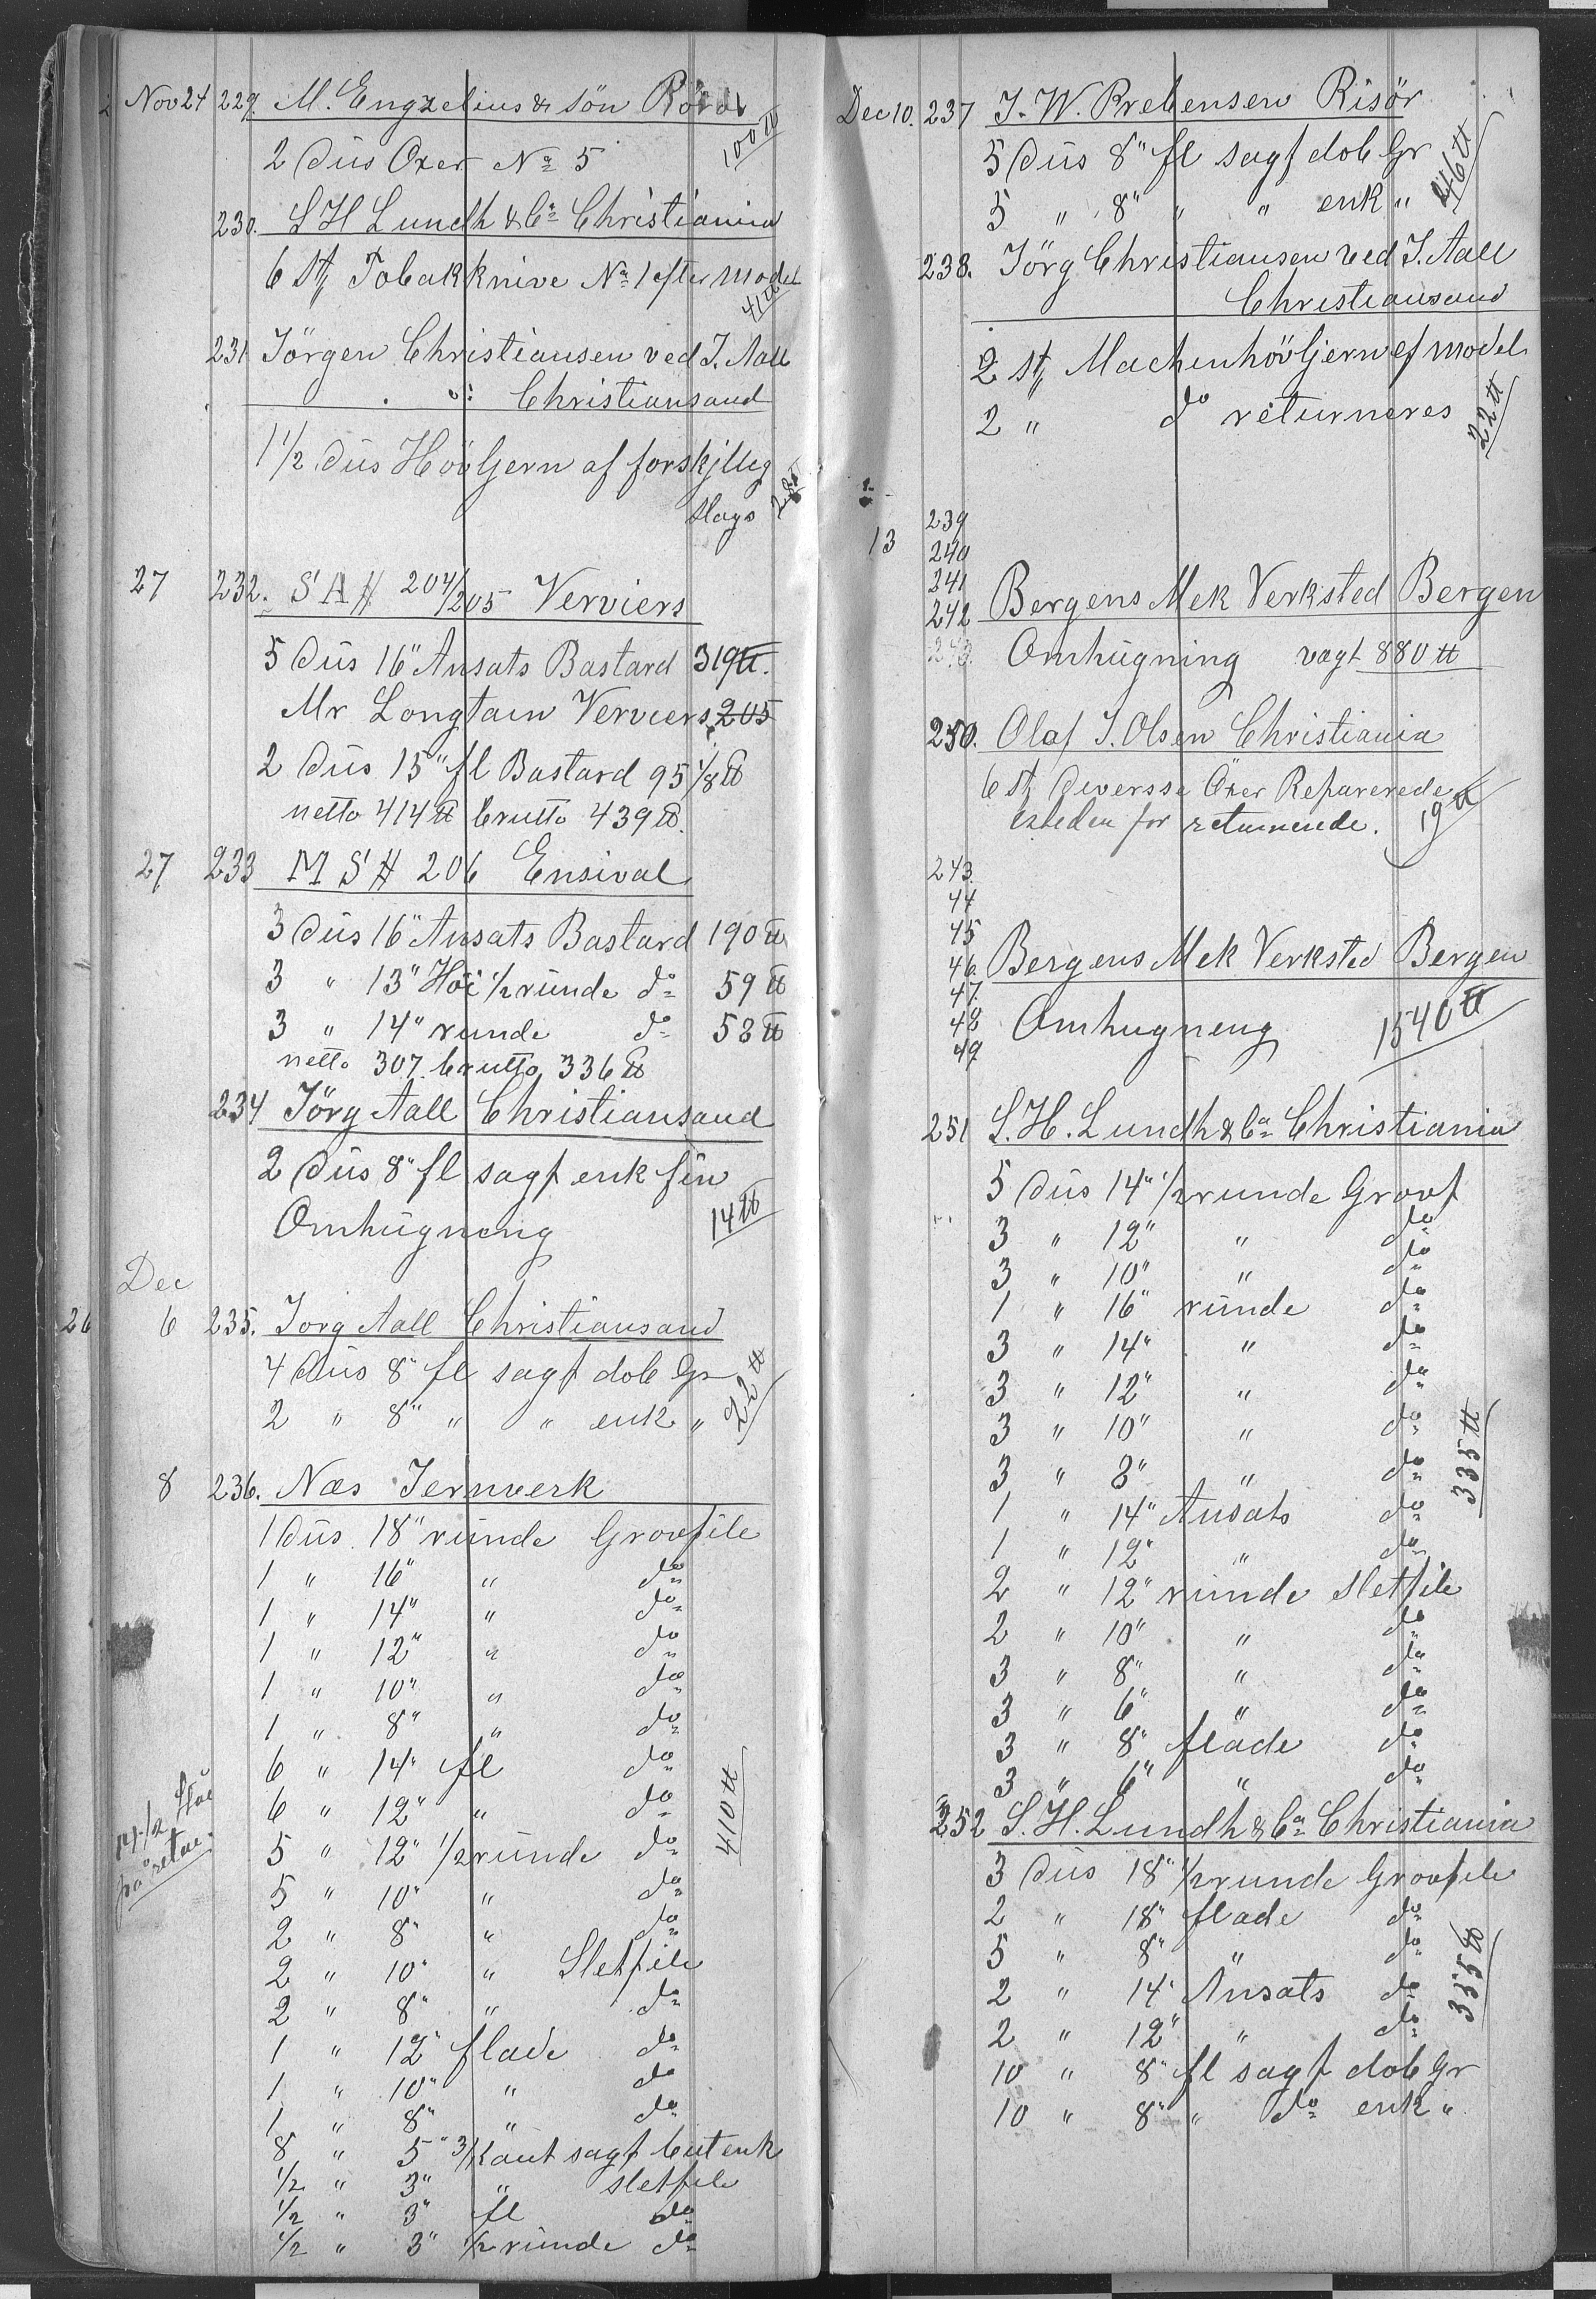 Nov 24 229. M. Engzelius & sön Röros
2 Düs Oxer No 5 100 ℔
230. S H Lundh & Co Christiania
6 St Tobakknive No 1 efter model
41 ℔
231 Jörgen Christiansen ved J. Aall
Christiansand
1 1/2 Düs Hövljern af forskjillig
Slags
27 232. S A H 204/205 Verviers
5 Düs 16" Ansats Bastard 319 ℔.
Mr Longtain Verviers 205
2 Düs 15" fl Bastard 95 1/8 ℔
netto 414 ℔ brutto 439 ℔.
27 233 M S H 206 Ensival
3 Düs 16" Ansats Bastard 190 ℔
3 " 13" Höi 1/2 runde do 59 ℔
3 " 14" runde do 58 ℔
netto 307. brutto 336 ℔
234 Jörg Aall Christiansand
2 Düs 8" fl sagf enk fin
Omhügning 14 ℔
Dec
26 6 235. Jorg Aall Christiansand
4 Düs 8" fl sagf dob Gr
2 " 8" " " enk " 22 ℔
8 236. Næs Jernverk
1 Düs. 18" runde Grovfile
1 " 16" " do
1 " 14" " do
1 " 12" " do
1 " 10" " do
1 " 8" " do
6 " 14" fl do
6 " 12" " do
5 " 12" 1/2 runde do 410 ℔
5 " 10" " do
2 " 8" " do
2 " 10" " Sletfile
2 " 8" " do
1 " 12" flade do
1 " 10" " do
1 " 8" " do
8 " 5" 3/Kant sagf but enk
1/2 " 3" " sletfile
1/2 " 3" fl do
1/2 " 3" 1/2 runde do
Dec 10. 237 J. W. Prebensen Risör
5 Düs 8" fl sagf dob Gr
5 " 8" " " enk " 46 ℔
238. Jörg Christiansen ved J. Aall
Christiansand
2 St Machenhövljern ef model
2 " do returneres 22 ℔
239
13 240
241
242 Bergens Mek Verksted Bergen
Omhügning vagt 880 ℔
250. Olaf J. Olsen Christiania
6 St Diversse Öxer Reparerede
for returnerede. 19 ℔
243
44
45
46 Bergens Mek Verksted Bergen
47.
48 Omhugneng 1540 ℔
49
251 S. H. Lundh & Co Christiania
5 Düs 14" 1/2 runde Grovf
3 " 12" " do
3 " 10" " do
1 " 16" runde do
3 " 14" " do
3 " 12" " do
3 " 10" " do
3 " 8" " do 335 ℔
1 " 14" Ansats do
1 " 12" " do
2 " 12" runde Sletfile
2 " 10" " do
3 " 8" " do
3 " 6" " do
3 " 8" flade do
3 " 6" " do
252 S. H. Lundh & Co Christiania
3 Düs 18" 1/2 runde Grovfile
2 " 18" flade do
5 " 8" " do
2 " 14" Ansats do 355 ℔
2 " 12" " do
10 " 8" fl sagf dob Gr
10 " 8" " do enk "